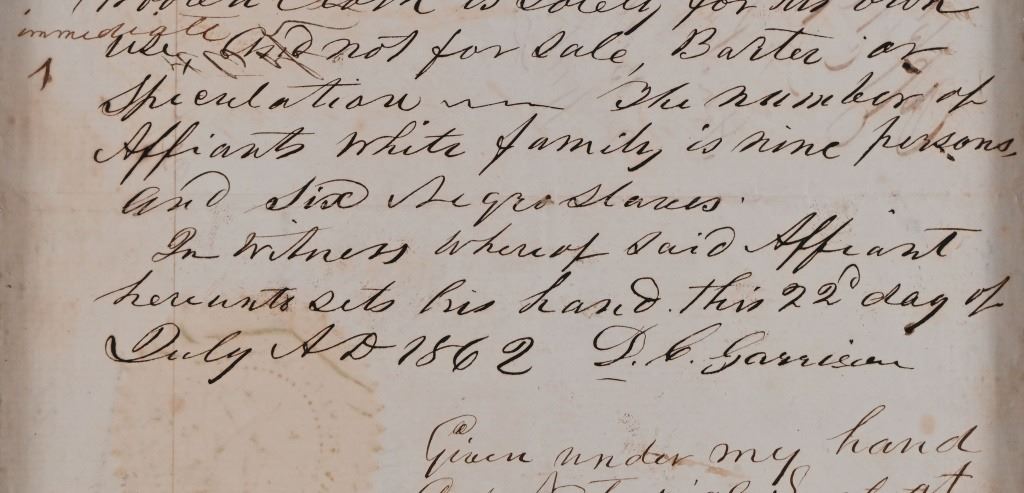 Woolen Cloth is solely for his own
immediate
use, and not for sale, Barter or
Speculation — The number of
Affiants white family is nine persons,
and Six Negro slaves.
In Witness whereof said Affiant
hereunto sets his hand this 22d day of
July AD 1862 D. C. Garrison
Given under my hand